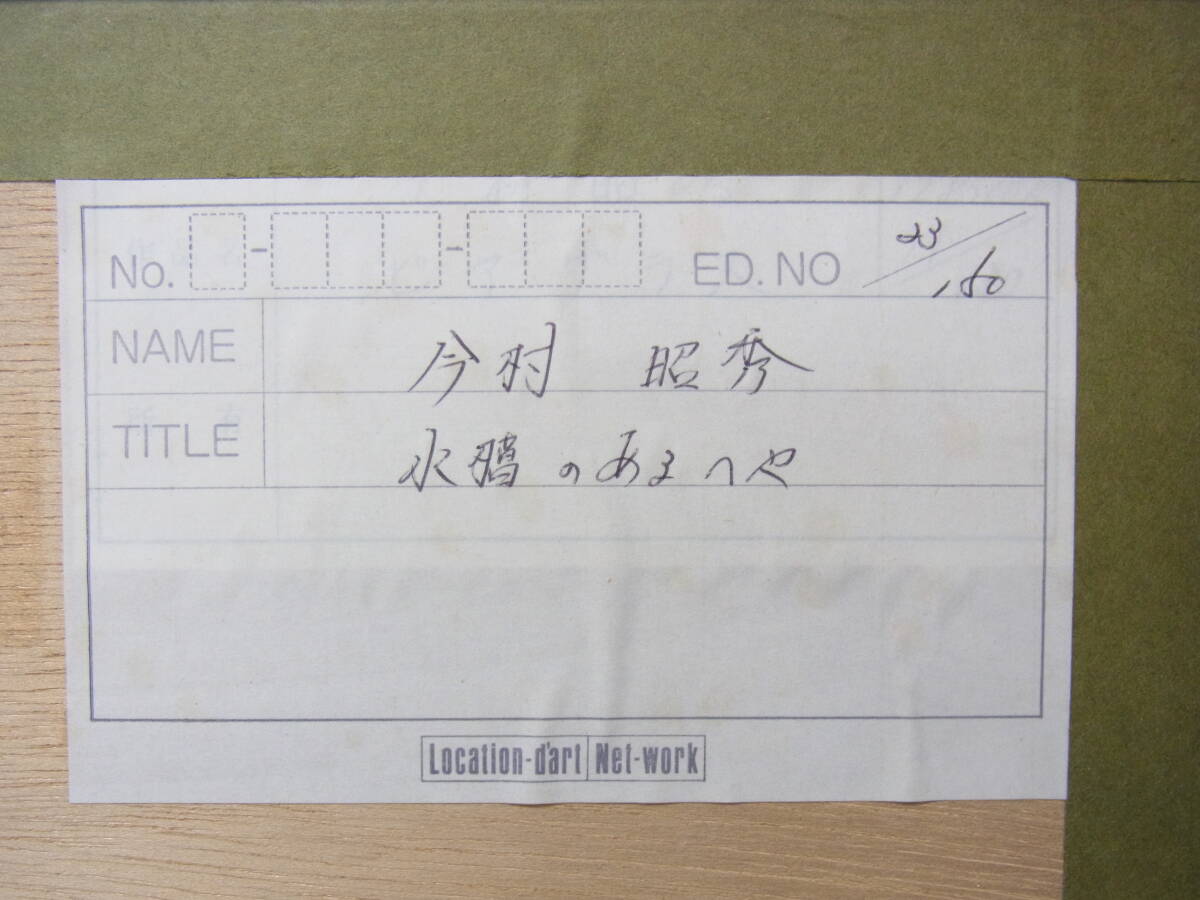 No. - - ED. NO 23/150
NAME 今村 昭秀
TITLE 水槽のあるへや
Location-d'art Net-work